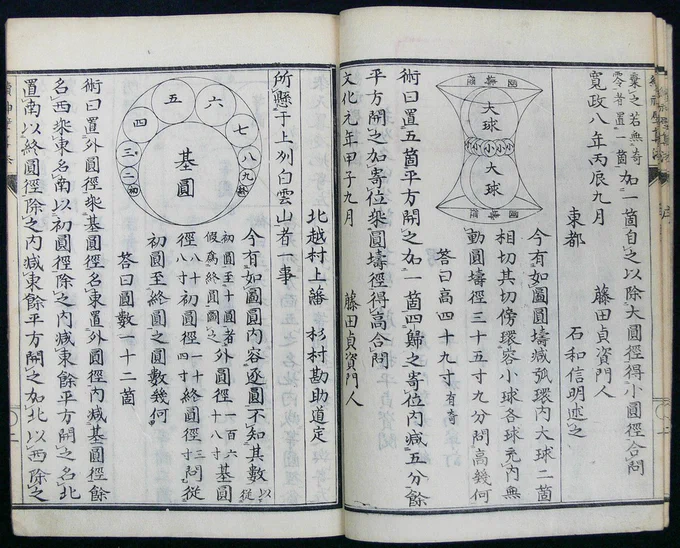 棄之若無奇零者置一箇加一箇自之以除大圓徑得小圓徑合問
寛政八年丙辰九月 藤田貞資門人
東都 石和信明述之
大球
小小小小
大球
今有如圖圓壔減弧環内大球二箇
相切其切傍環容小球各球充内無
動圓壔徑三十五寸九分問高幾何
答曰高四十九寸有奇
術曰置五箇平方開之加一箇四歸之寄位内減五分餘
平方開之加寄位乗圓壔徑得高合問
文化元年甲子九月 藤田貞資門人
北越村上藩 杉村勘助道定
所懸于上州白雲山者一事
初
二
三
四
五
六
七
八
九
終
基圓
今有如圖圓内容逐圓不知其數以從
初圓至十圓者假爲終圓圖之外圓徑一百六十八寸基圓
徑初圓徑終圓徑問從
初圓至終圓之圓數幾何
答曰圓數一十二箇
術曰置外圓徑乗基圓徑名東置外圓徑内減基圓徑餘
名西乗東名南以初圓徑除之内減東餘平方開之名北
置南以終圓徑除之内減東餘平方開之加北以西除之